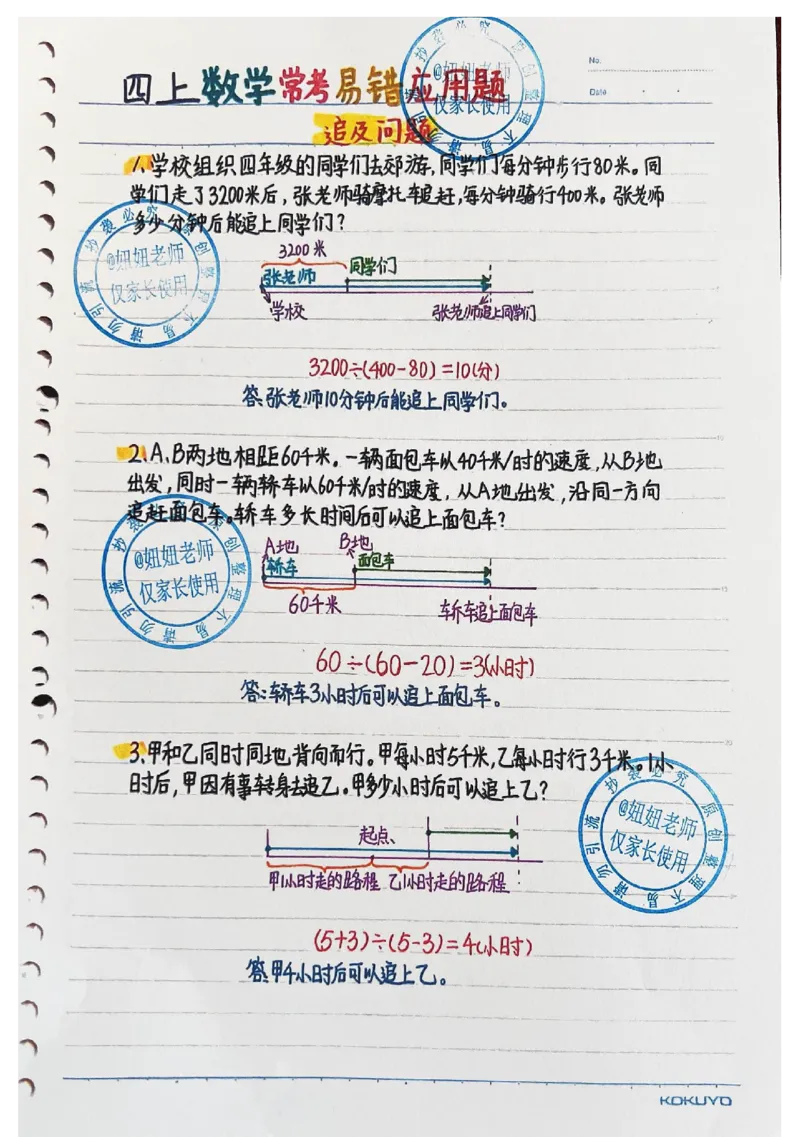 No.
Date
四上数学常考易错应用题
追及问题
1、学校组织四年级的同学们去郊游,同学们每分钟步行80米。同
学们走了3200米后，张老师骑摩托车追赶,每分钟骑行400米。张老师
多少分钟后能追上同学们？
3200米
张老师 同学们
学校 张老师追上同学们
3200÷(400-80)=10(分)
答:张老师10分钟后能追上同学们。
2、A、B两地相距60千米。一辆面包车以40千米/时的速度,从B地
出发,同时一辆轿车以60千米/时的速度，从A地出发,沿同一方向
追赶面包车。轿车多长时间后可以追上面包车？
A地 B地
轿车 面包车
60千米 轿车追上面包车
60÷(60-20)=3(小时)
答:轿车3小时后可以追上面包车。
3、甲和乙同时同地背向而行。甲每小时5千米,乙每小时行3千米。1小
时后,甲因有事转身去追乙。甲多少小时后可以追上乙？
起点
甲1小时走的路程 乙1小时走的路程
(5+3)÷(5-3)=4(小时)
答:甲4小时后可以追上乙。
KOKUYO
@妞妞老师
仅家长使用
抄袭必究 原创整理不易 请勿引流
@妞妞老师
仅家长使用
抄袭必究 原创整理不易 请勿引流
@妞妞老师
仅家长使用
抄袭必究 原创整理不易 请勿引流
@妞妞老师
仅家长使用
抄袭必究 原创整理不易 请勿引流